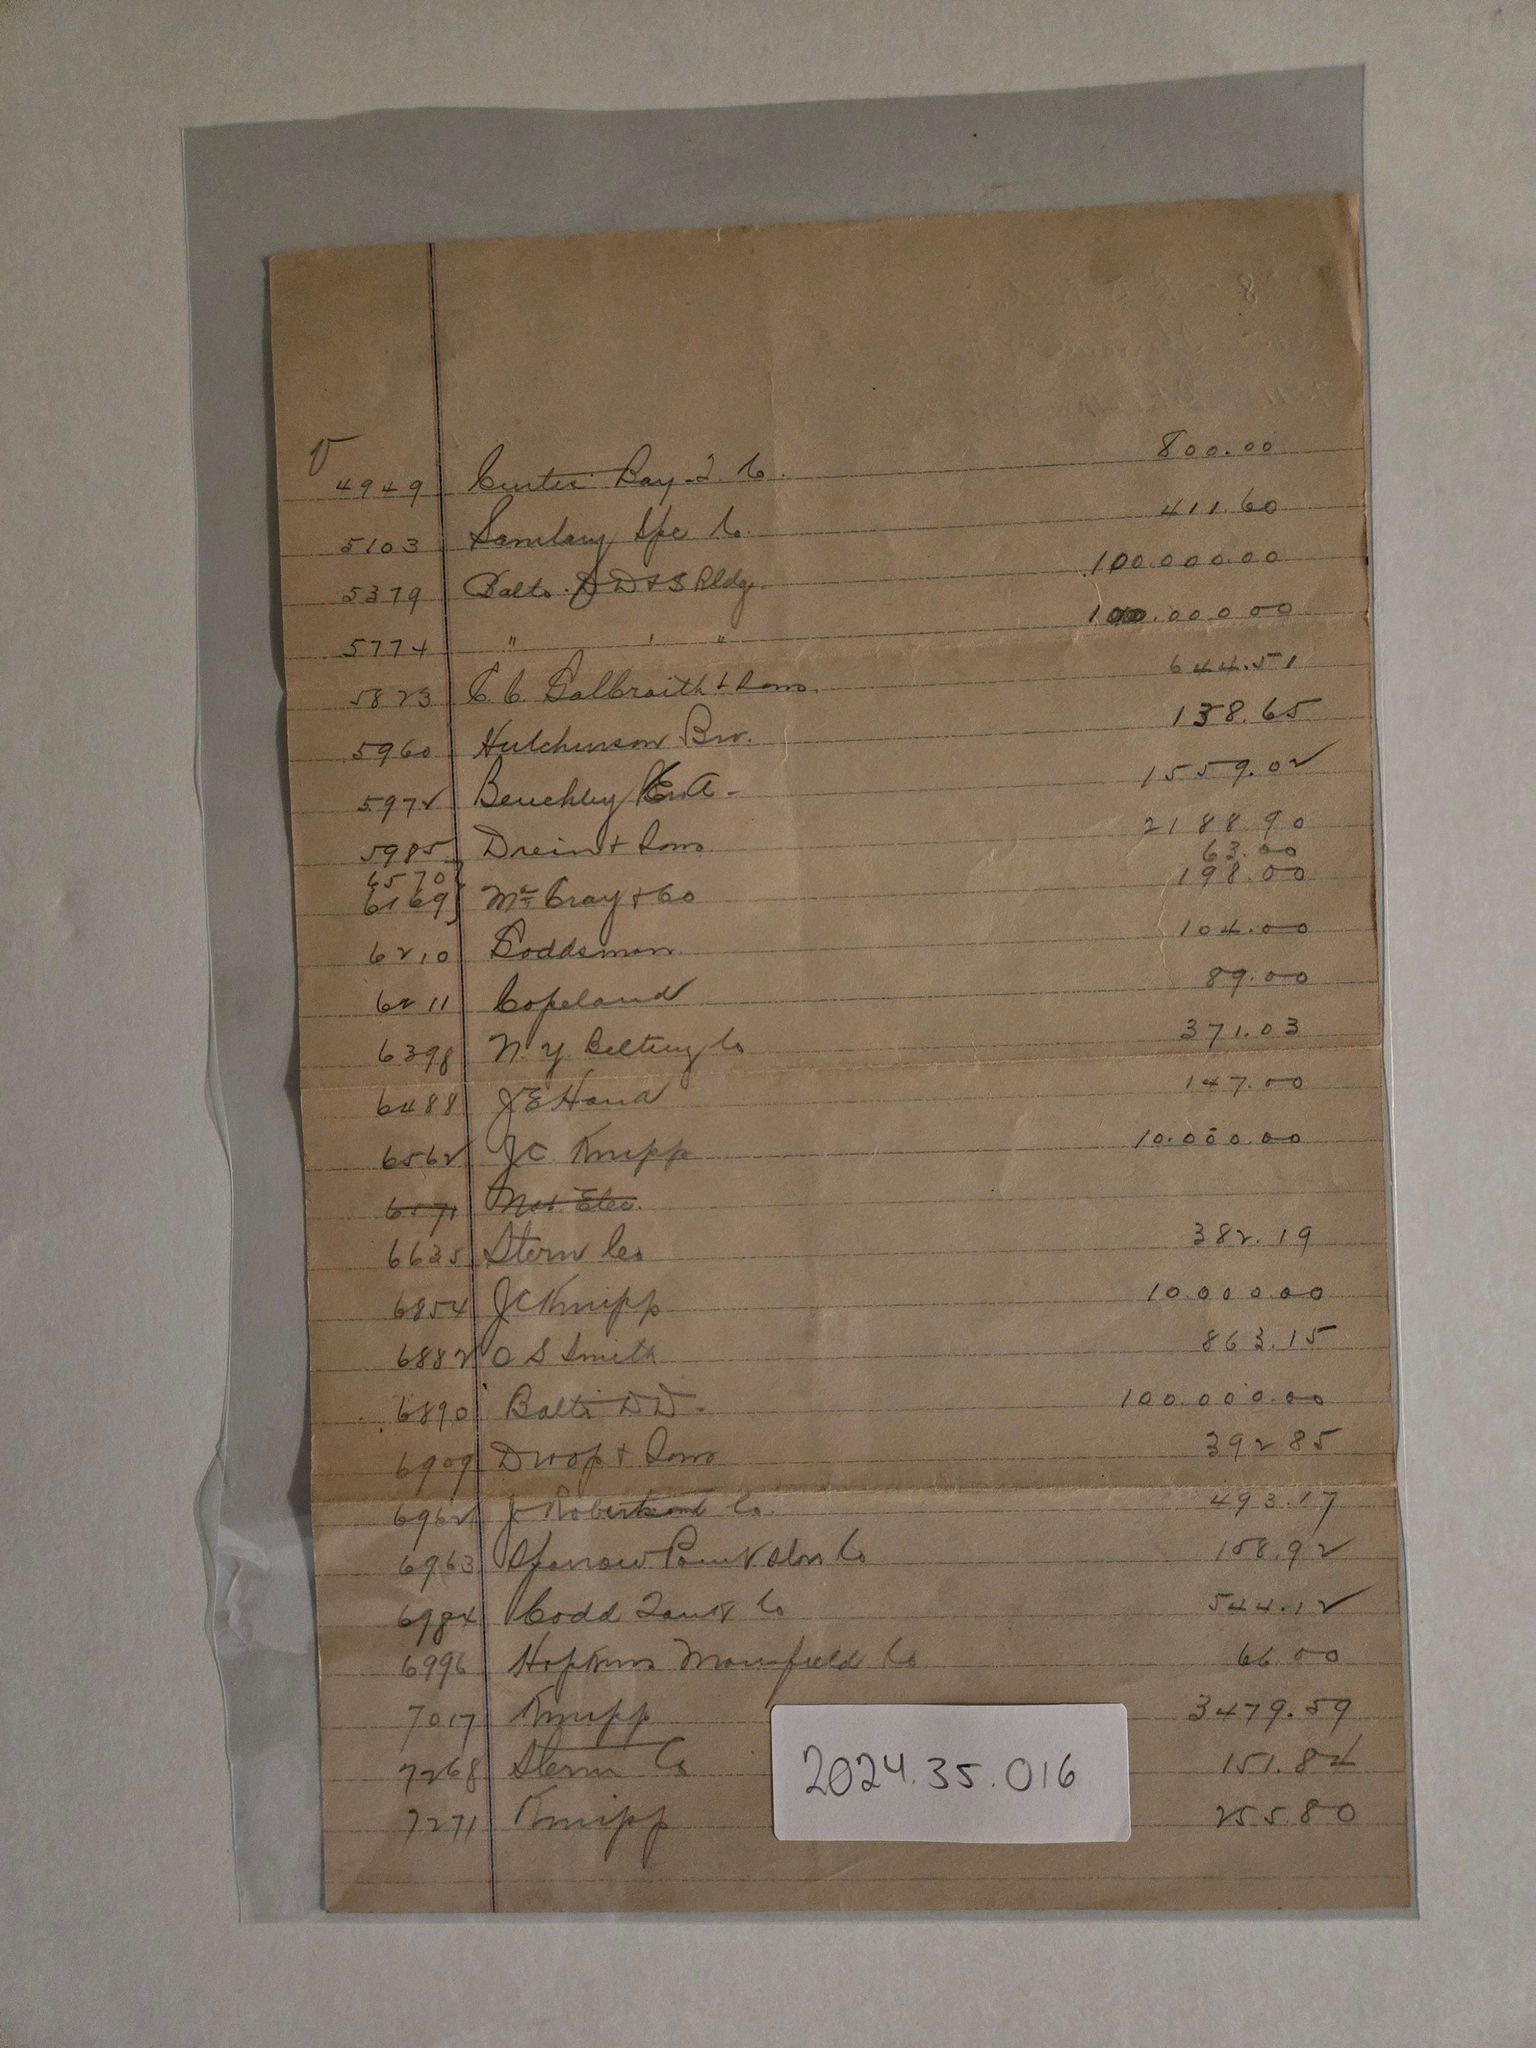 V
4949 Curtis Bay T. Co. 800.00
5103 Sanitary Spe Co. 411.60
5379 Balto. DD & S Bldg. 100.000.00
5774 " " " 100.000.00
5823 C. C. Galbraith & Sons. 644.51
5960 Hutchinson Bro. 138.65
5972 Benchley E. A - 1559.02
5985 Drein & Sons 2188 90
6570 } 63.00
6169 } McCray & Co 198.00
6210 Goddsman 104.00
6211 Copeland 89.00
6398 N. Y. Belting Co 371.03
6488 J E Hand 147.00
6562 J C Knipp 10.000.00
6571 Nat. Elec.
6635 Stern Co 382.19
6854 J C Knipp 10.000.00
6882 O S Smith 863.15
6890 Balto D D - 100.000.00
6909 Droop & Sons 392 85
6962 J Robertson Co. 493.17
6963 Sparrow Point Store Co 158.92
6984 Codd Tank Co 544.12
6996 Hopkins Mansfield Co 66.00
7017 Knipp 3479.59
7268 Stern Co 151.84
7271 Knipp 255.80
2024.35.016